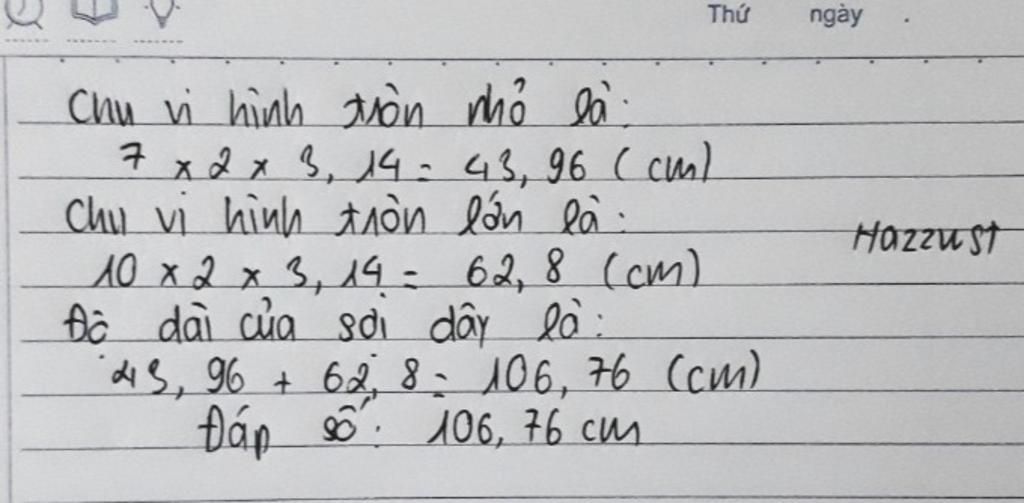 Thứ ngày .
Chu vi hình tròn nhỏ là:
7 x 2 x 3,14 = 43,96 (cm)
Chu vi hình tròn lớn là:
Hazzust
10 x 2 x 3,14 = 62,8 (cm)
Độ dài của sợi dây là:
43,96 + 62,8 = 106,76 (cm)
Đáp số: 106,76 cm